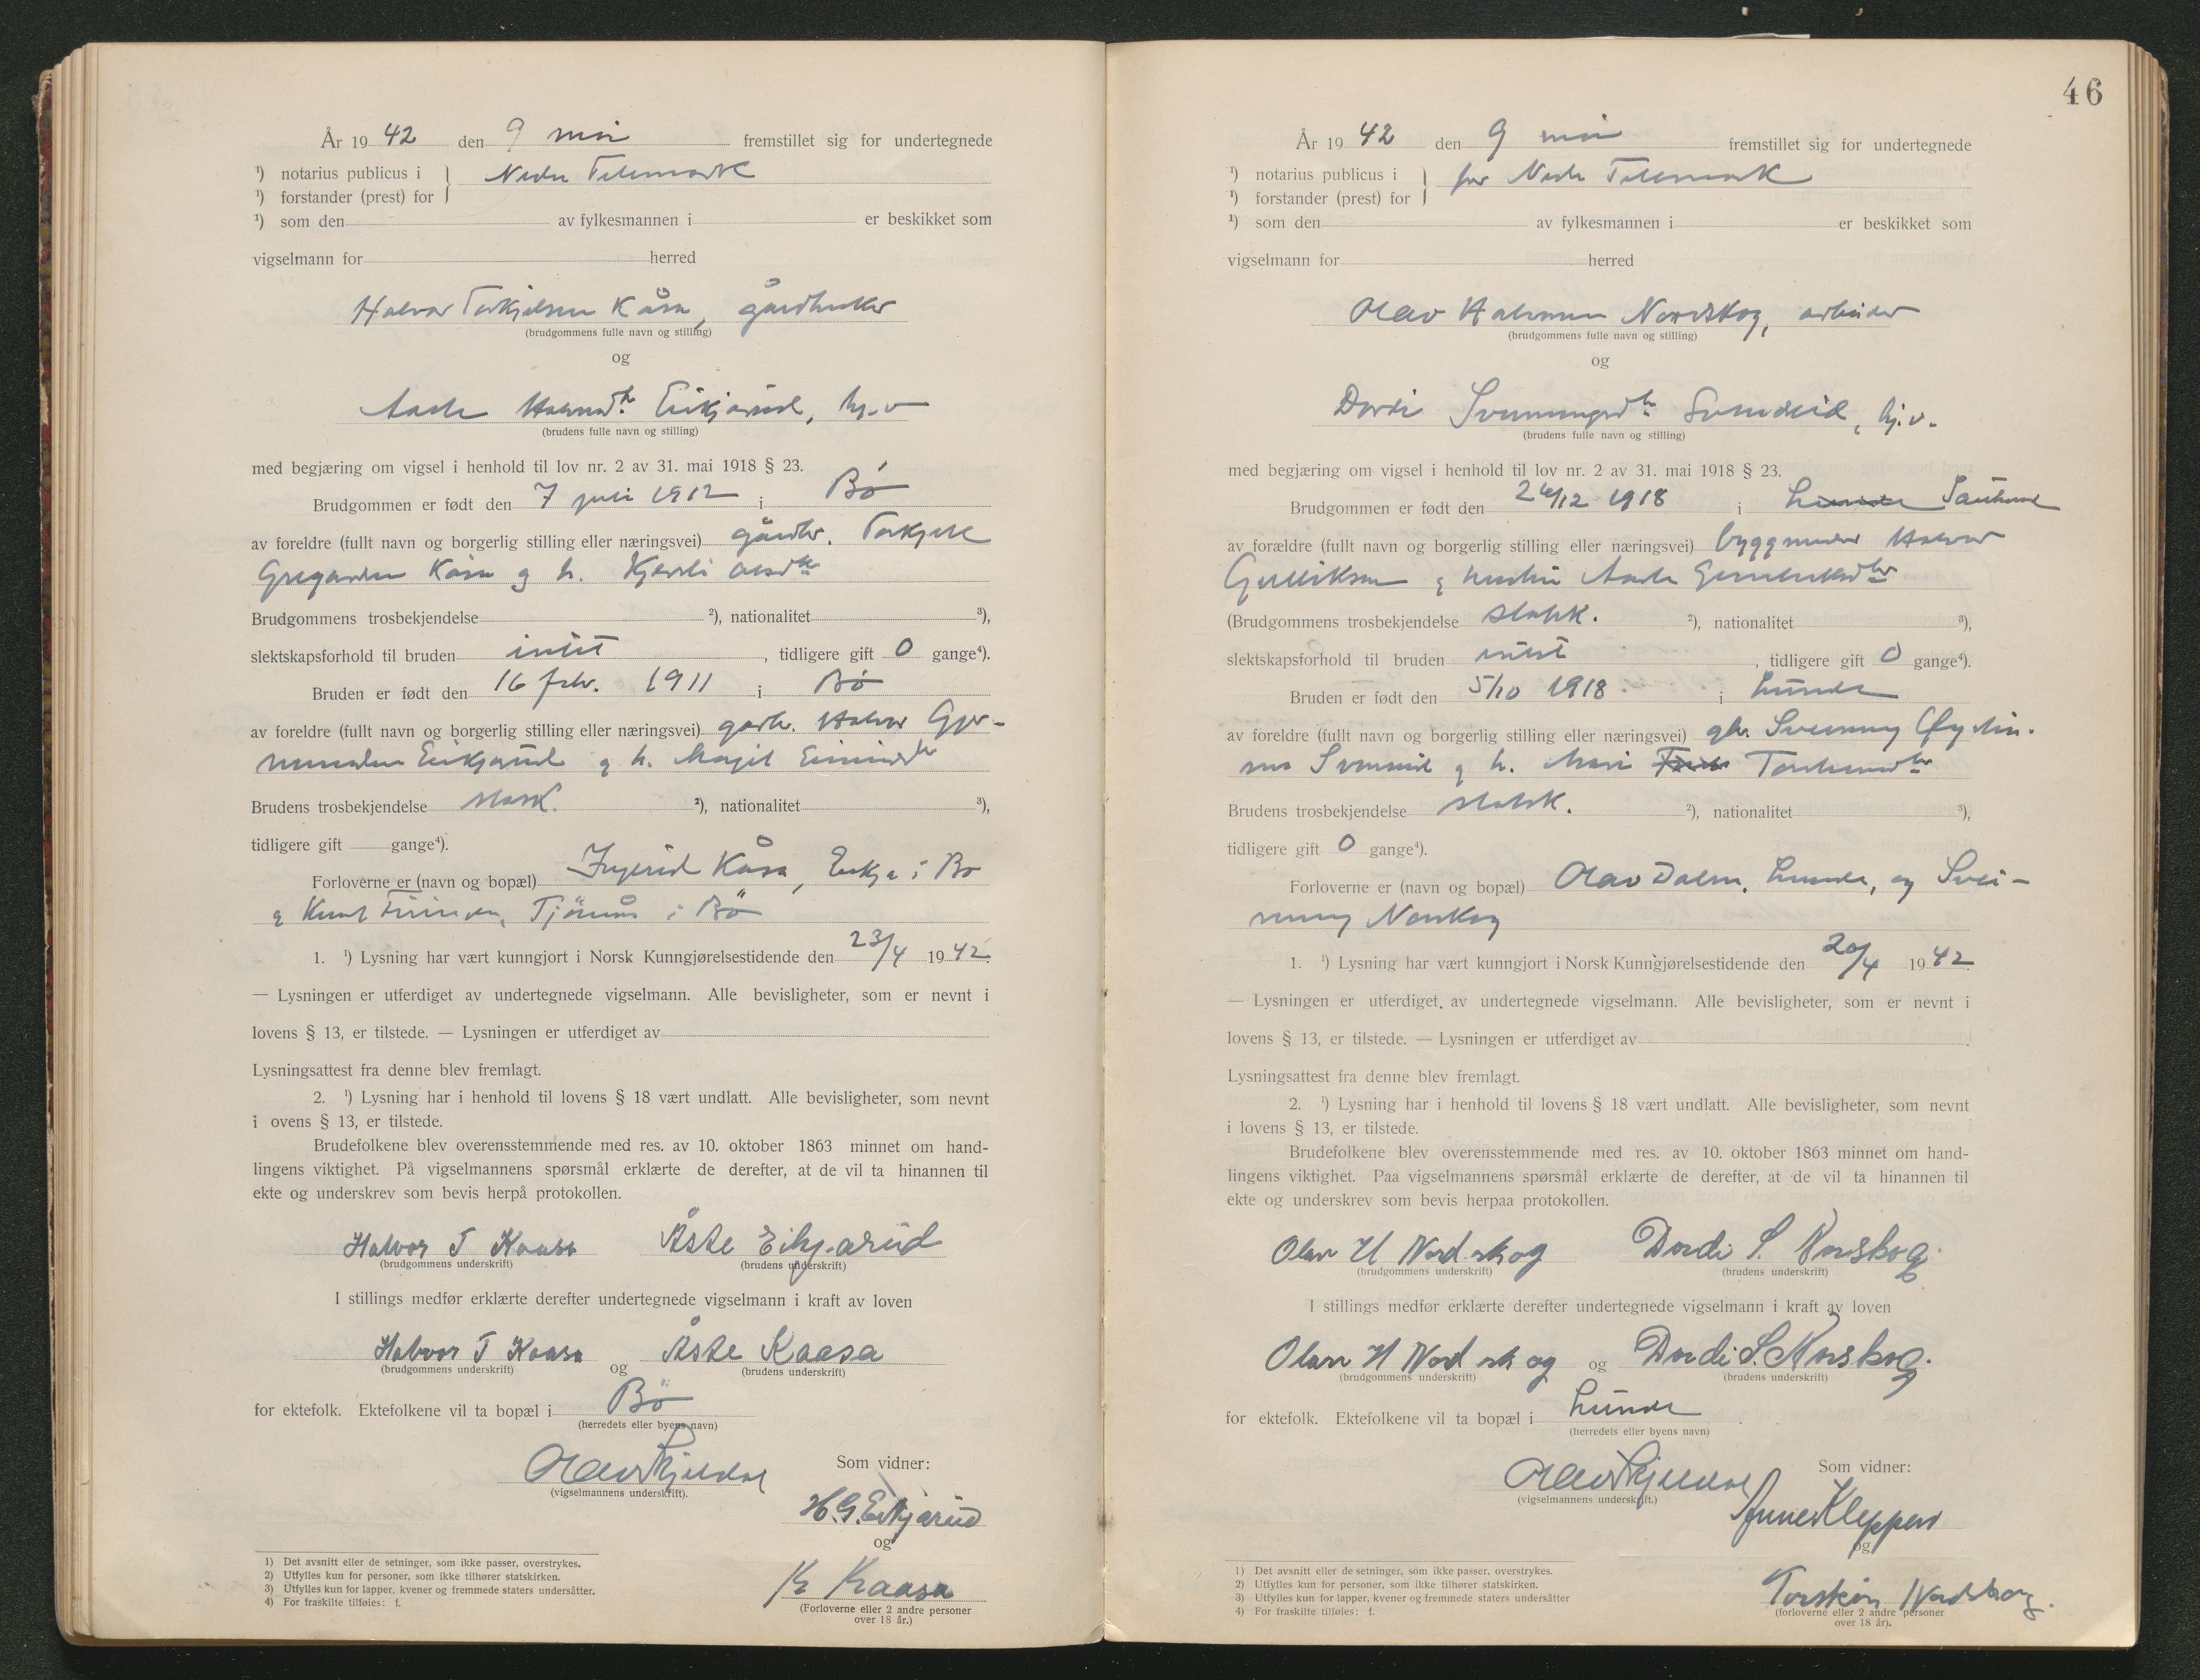 År 19 42 den 9 mai fremstillet sig for undertegnede
¹) notarius publicus i
Nedre Telemark
¹) forstander (prest) for
¹) som den av fylkesmannen i er beskikket som
vigselmann for herred
Halvor Torkjelsen Kåsa, gårdbruker
(brudgommens fulle navn og stilling)
og
Aaste Halvorsdtr Eikjarud, hj.v
(brudens fulle navn og stilling)
med begjæring om vigsel i henhold til lov nr. 2 av 31. mai 1918 § 23.
Brudgommen er født den 7 juli 1912 i Bø
av foreldre (fullt navn og borgerlig stilling eller næringsvei) gårdbr. Torkjell
Kåsa og h.
Brudgommens trosbekjendelse ²), nationalitet ³),
slektskapsforhold til bruden intet, tidligere gift 0 gange⁴).
Bruden er født den 16 febr. 1911 i Bø
av foreldre (fullt navn og borgerlig stilling eller næringsvei) gårdb. Halvor Gjer-
mundsen Eikjarud og h. Margit
Brudens trosbekjendelse statsk. ²), nationalitet ³),
tidligere gift gange⁴).
Forloverne er (navn og bopæl) Ingerid Kåsa, i Bø
og Knut i Bö
1. ¹) Lysning har vært kunngjort i Norsk Kunngjørelsestidende den 23/4 1942.
— Lysningen er utferdiget av undertegnede vigselmann. Alle bevisligheter, som er nevnt i
lovens § 13, er tilstede. — Lysningen er utferdiget av
Lysningsattest fra denne blev fremlagt.
2. ¹) Lysning har i henhold til lovens § 18 vært undlatt. Alle bevisligheter, som nevnt
i ovens § 13, er tilstede.
Brudefolkene blev overensstemmende med res. av 10. oktober 1863 minnet om hand-
lingens viktighet. På vigselmannens spørsmål erklærte de derefter, at de vil ta hinannen til
ekte og underskrev som bevis herpå protokollen.
Halvor T Kaasa Åste Eikjarud
(brudgommens underskrift) (brudens underskrift)
I stillings medfør erklærte derefter undertegnede vigselmann i kraft av loven
Halvor T Kaasa og Åste Kaasa
(brudgommens underskrift) (brudens underskrift)
for ektefolk. Ektefolkene vil ta bopæl i Bö
(herredets eller byens navn)
Som vidner:
Olav Skjeldal
(vigselmannens underskrift).
H.G. Eikjarud
og
K Kaasa
(Forloverne eller 2 andre personer
over 18 år.)
1) Det avsnitt eller de setninger, som ikke passer, overstrykes.
2) Utfylles kun for personer, som ikke tilhører statskirken.
3) Utfylles kun for lapper, kvener og fremmede staters undersåtter.
4) For fraskilte tilføies: f.
46
År 19 42 den 9 mai fremstillet sig for undertegnede
¹) notarius publicus i
for Nedre Telemark
¹) forstander (prest) for
¹) som den av fylkesmannen i er beskikket som
vigselmann for herred
Olav Halvorsen Nordskog, arbeider
(brudgommens fulle navn og stilling)
og
Dordi Svenningsdtr Svenseid, hj.v.
(brudens fulle navn og stilling)
med begjæring om vigsel i henhold til lov nr. 2 av 31. mai 1918 § 23.
Brudgommen er født den 26/12 1918 i Lunde Sauherad
av forældre (fullt navn og borgerlig stilling eller næringsvei) byggmester Halvor
Gjullikson og hustru Aaste
(Brudgommens trosbekjendelse statsk. ²), nationalitet ³),
slektskapsforhold til bruden intet, tidligere gift 0 gange⁴).
Bruden er født den 5/10 1918 i Lunde
av foreldre (fullt navn og borgerlig stilling eller næringsvei) gbr. Svenning Øystin-
sen Svenseid og h. Mari
Brudens trosbekjendelse statsk. ²), nationalitet ³),
tidligere gift 0 gange⁴).
Forloverne er (navn og bopæl) Olav Dalen, Lunde, og Svei-
nung Norskog
1. ¹) Lysning har vært kunngjort i Norsk Kunngjørelsestidende den 20/4 1942.
— Lysningen er utferdiget av undertegnede vigselmann. Alle bevisligheter, som er nevnt i
lovens § 13, er tilstede. — Lysningen er utferdiget av
Lysningsattest fra denne blev fremlagt.
2. ¹) Lysning har i henhold til lovens § 18 vært undlatt. Alle bevisligheter, som nevnt
i lovens § 13, er tilstede.
Brudefolkene blev overensstemmende med res. av 10. oktober 1863 minnet om hand-
lingens viktighet. Paa vigselmannens spørsmål erklærte de derefter, at de vil ta hinannen til
ekte og underskrev som bevis herpaa protokollen.
Olav H Nordskog Dordi S. Norskog.
(brudgommens underskrift) (brudens underskrift)
I stillings medfør erklærte derefter undertegnede vigselmann i kraft av loven
Olav H Nordskog og Dordi S. Norskog.
(brudgommens underskrift) (brudens underskrift)
for ektefolk. Ektefolkene vil ta bopæl i Lunde
(herredets eller byens navn)
Som vidner:
Olav Skjeldal
(vigselmannens underskrift.)
Kleppen
og
Torstein Nordskog.
(forloverne eller 2 andre personer
over 18 år).
1) Det avsnitt eller de setninger, som ikke passer, overstrykes.
2) Utfylles kun for personer, som ikke tilhører statskirken.
3) Utfylles kun for lapper, kvener og fremmede staters undersåtter
4) For fraskilte tilføies: f.